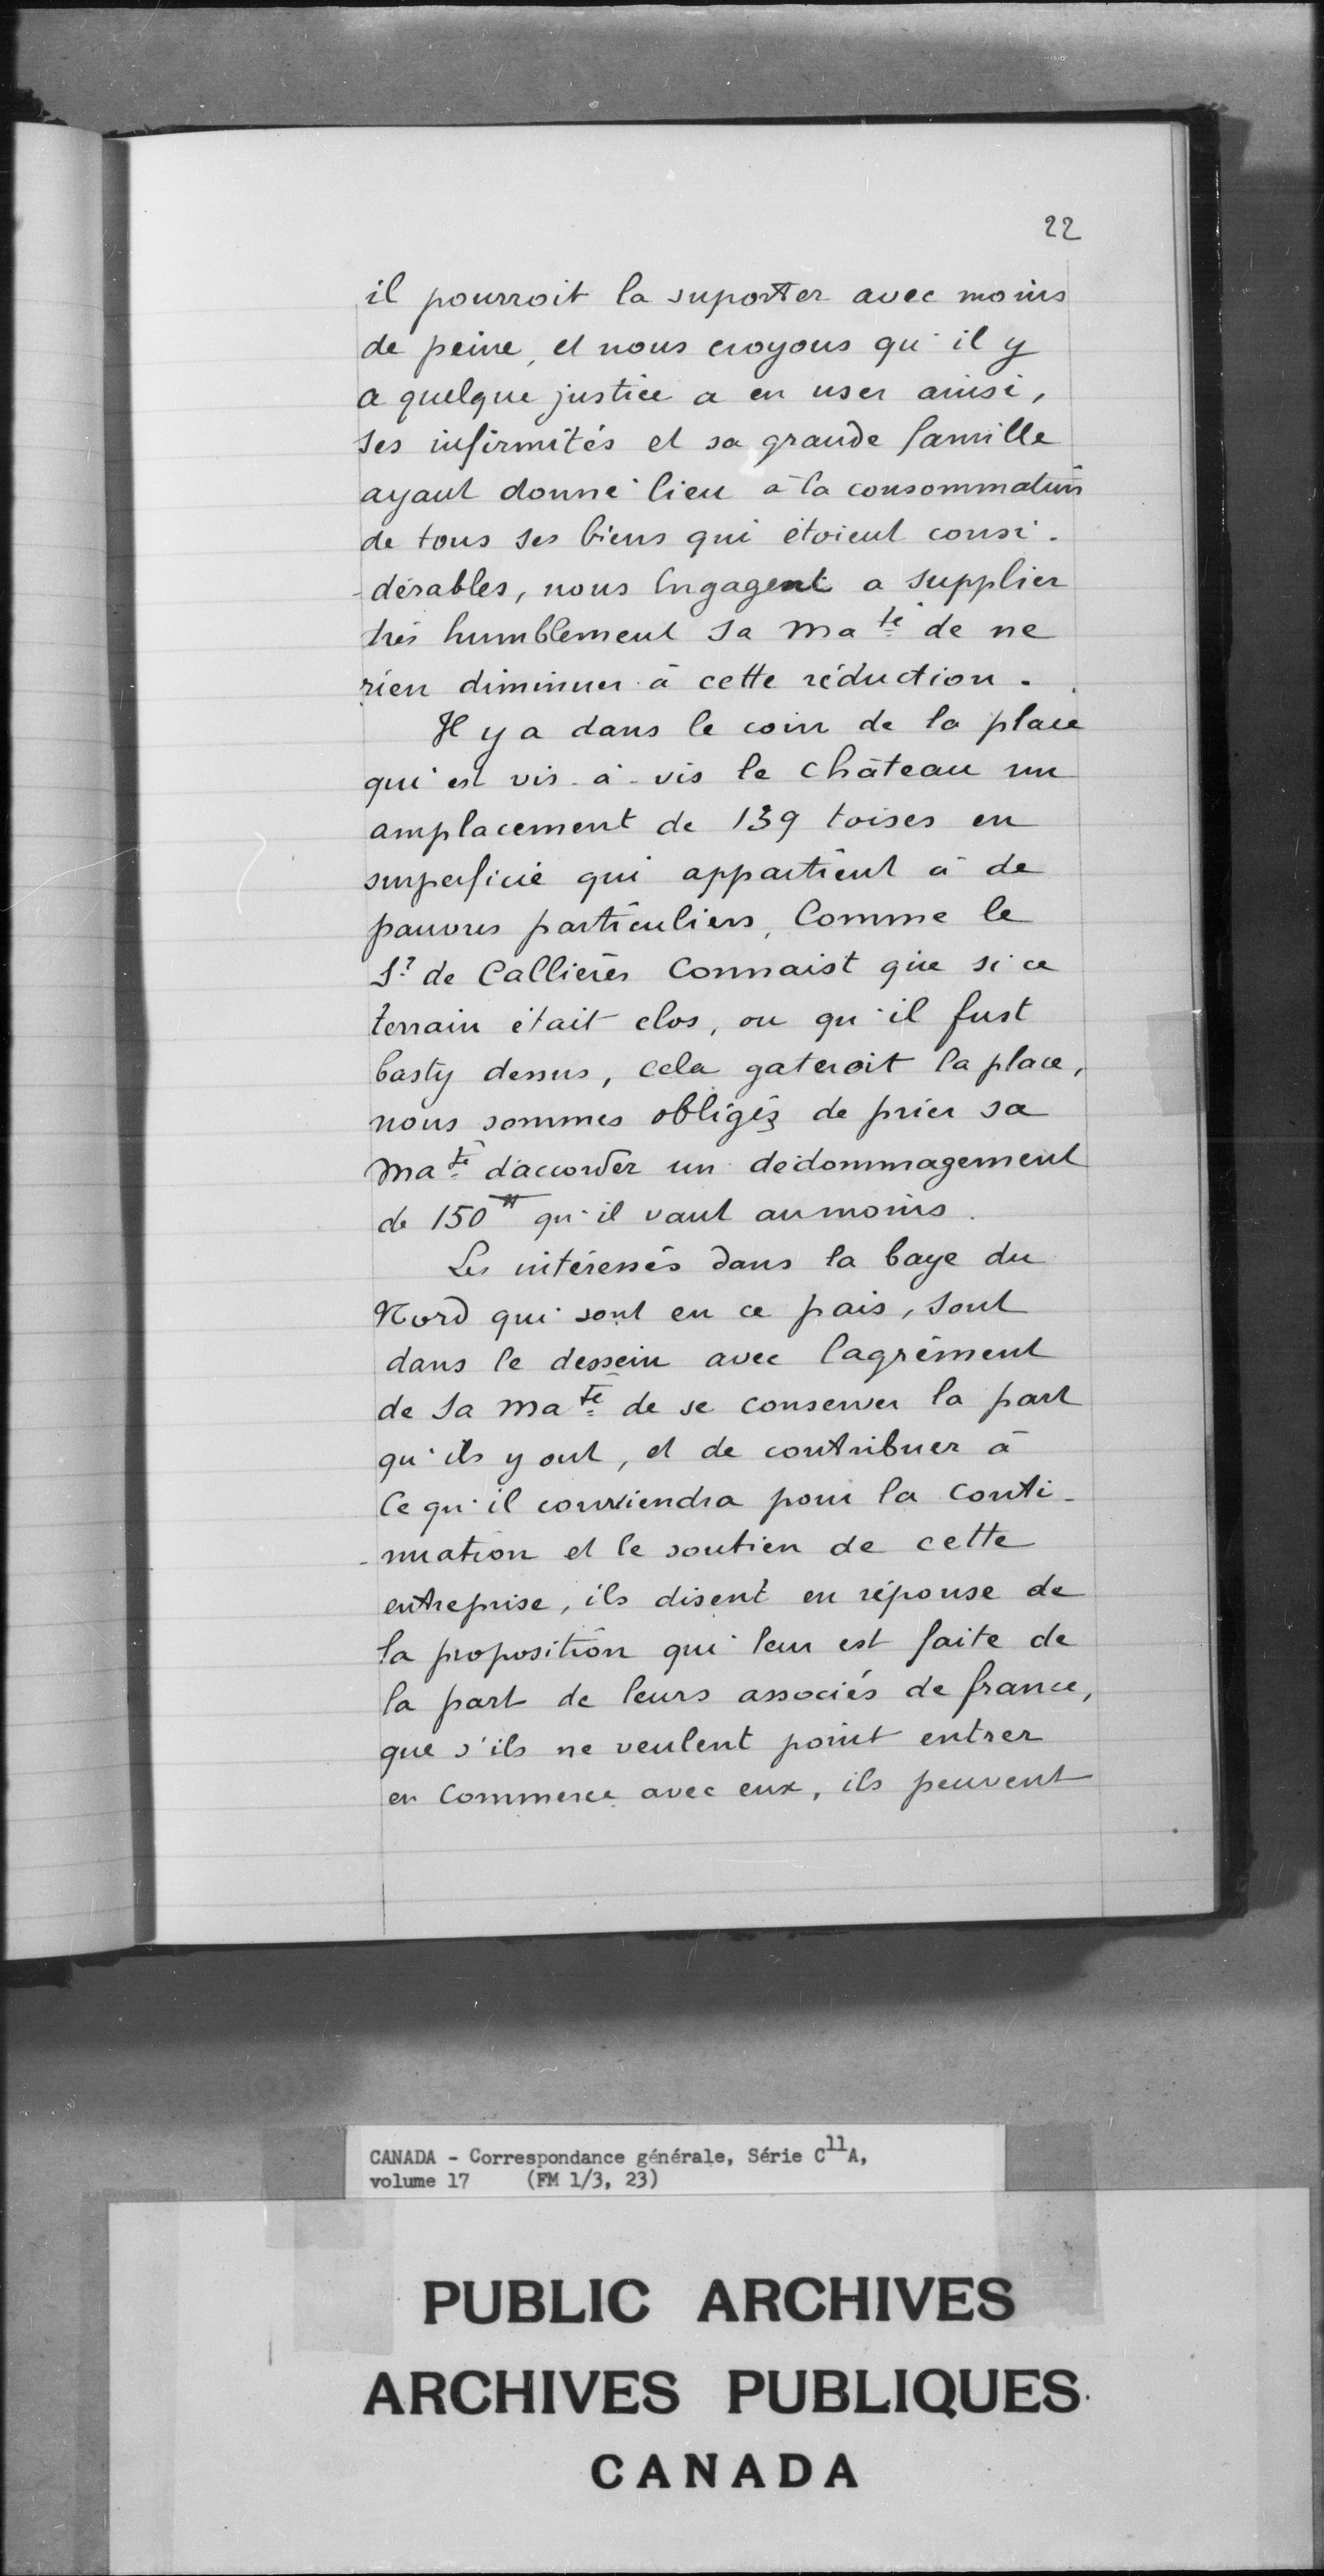 22
il pourroit la suporter avec moins
de peine, et nous croyons qu'il y
a quelque justice a en user ainsi,
ses infirmités et sa grande famille
ayant donné lieu à la consommation
de tous ses biens qui étoient consi-
-dérables, nous Engagent a supplier
très humblement Sa Ma té de ne
rien diminuer à cette réduction.
Il y a dans le coin de la place
qui est vis-à-vis le Château un
amplacement de 139 toises en
superficie qui appartient à de
pauvres particuliers, Comme le
Sr de Callières Connaist que si ce
terrain était clos, ou qu'il fust
basty dessus, cela gateroit la place,
nous sommes obligéz de prier sa
Ma té d'accorder un dédommagement
de 150 ₶ qu'il vaut au moins.
Les intéressés dans la baye du
Nord qui sont en ce pais, sont
dans le dessein avec l'agrément
de Sa Ma té de se conserver la part
qu'ils y ont, et de contribuer à
Ce qu'il conviendra pour la conti-
-nuation et le soutien de cette
entreprise, ils disent en réponse de
la proposition qui leur est faite de
la part de leurs associés de france,
que s'ils ne veulent point entrer
en Commerce avec eux, ils peuvent
CANADA - Correspondance générale, Série C11A,
volume 17 (FM 1/3, 23)
PUBLIC ARCHIVES
ARCHIVES PUBLIQUES
CANADA